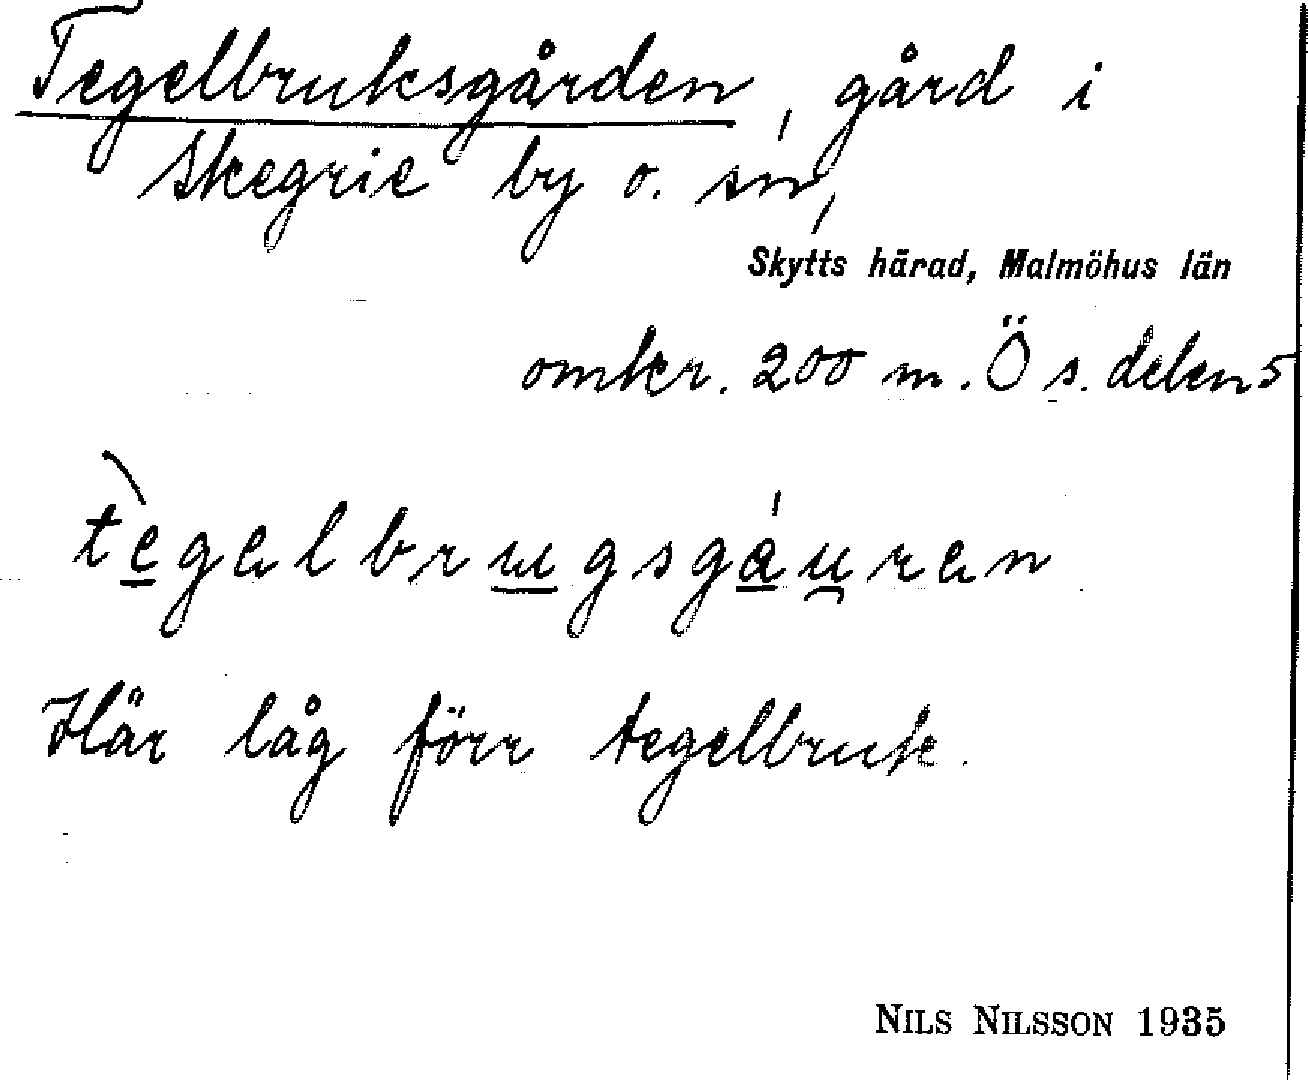 Tegelbruksgården, gård i
Skegrie by o. sn,
Skytts härad, Malmöhus län
omkr. 200 m. Ö s. delens
tegəlbrɯgsgáu̯rən
Här låg förr tegelbruk.
NILS NILSSON 1935